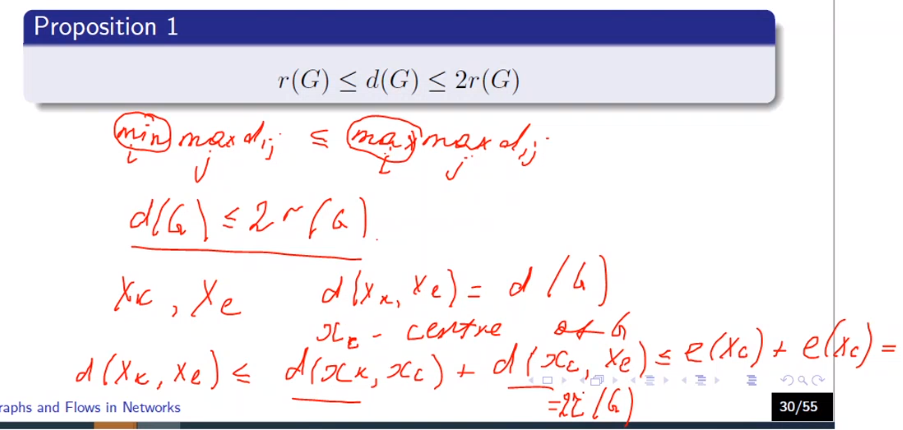 Proposition 1
r(G) ≤ d(G) ≤ 2r(G)
min max dij ≤ max max dij
i j i j
d(G) ≤ 2r(G).
xk, xe d(xk, xe) = d(G)
xc - centre of G
d(xk, xe) ≤ d(xk, xc) + d(xc, xe) ≤ e(xc) + e(xc) =
=2r(G)
raphs and Flows in Networks 30/55